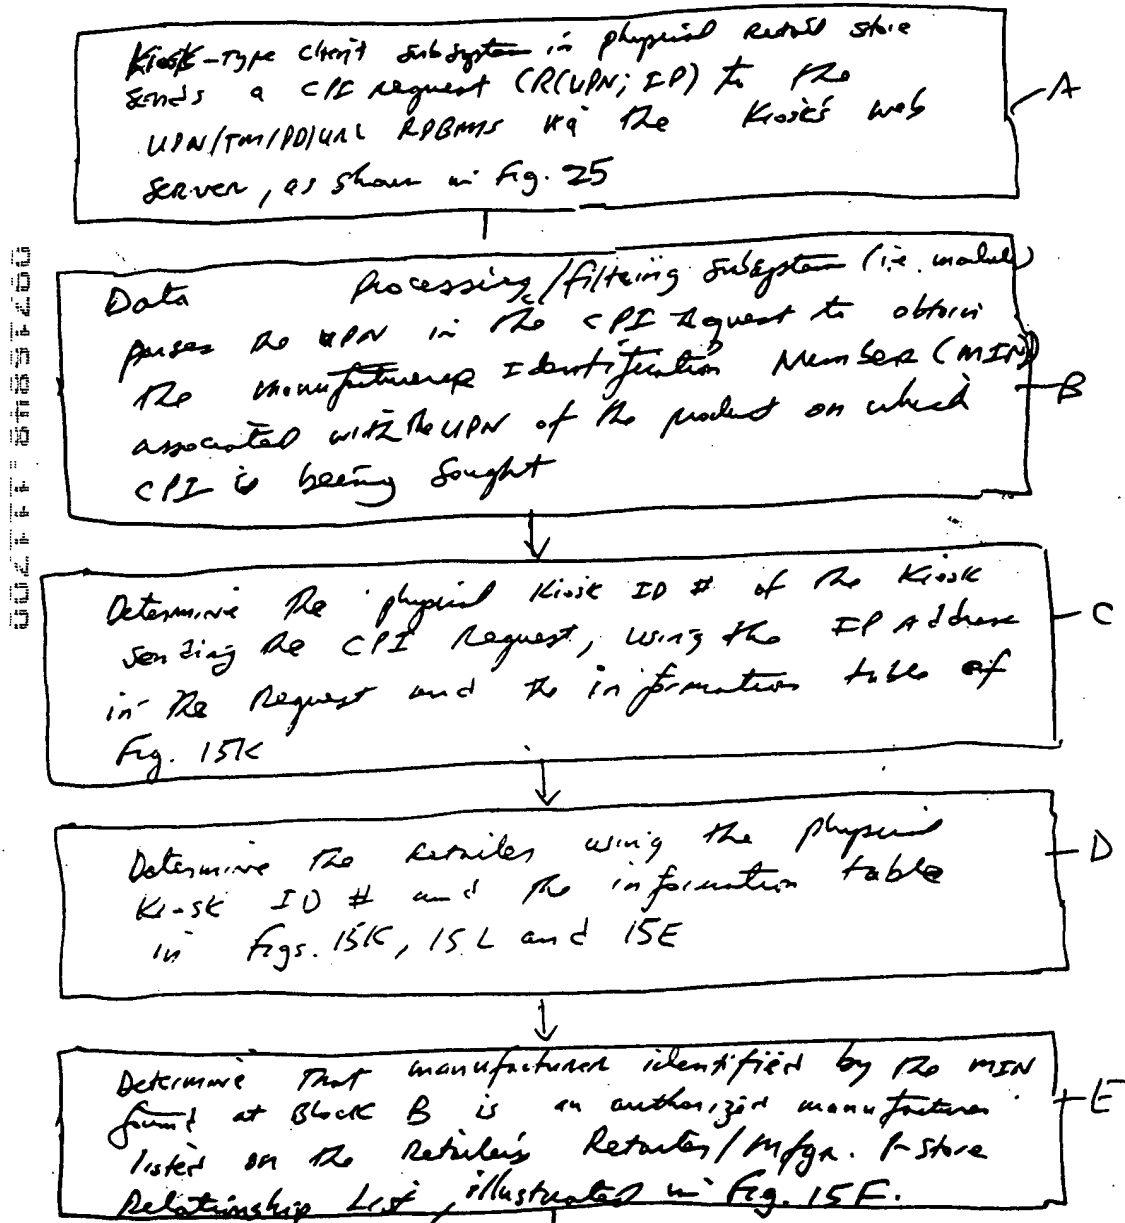 Kiosk-type client subsystem in physical retail store
sends a CPI request (R(UPN; IP) to the
UPN/TM/PD/URL RDBMS via the Kiosk's web
server, as shown in Fig. 25
A
Data Processing/filtering subsystem (i.e. module)
parses the UPN in the CPI request to obtain
the manufacturer Identification Number (MIN)
associated with the UPN of the product on which
CPI is being sought
B
Determine the physical Kiosk ID # of the Kiosk
sending the CPI Request, using the IP Address
in the Request and the information table of
Fig. 15K
C
Determine the retailer using the physical
Kiosk ID # and the information table
in Figs. 15K, 15L and 15E
D
Determine that manufacturer identified by the MIN
found at Block B is an authorized manufacturer
listed on the Retailer's Retailer/Mfgr. P-store
Relationship List, illustrated in Fig. 15F.
E